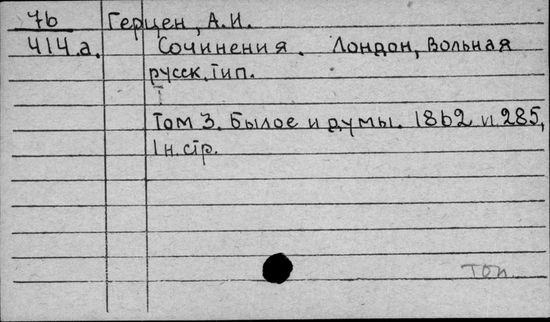 76 Герцен, А.И.
414.а. Сочинения. Лондон, Вольная
русск. тип.
Том 3. Былое и думы. 1862 VI. 285,
1 н. стр.
Топ.